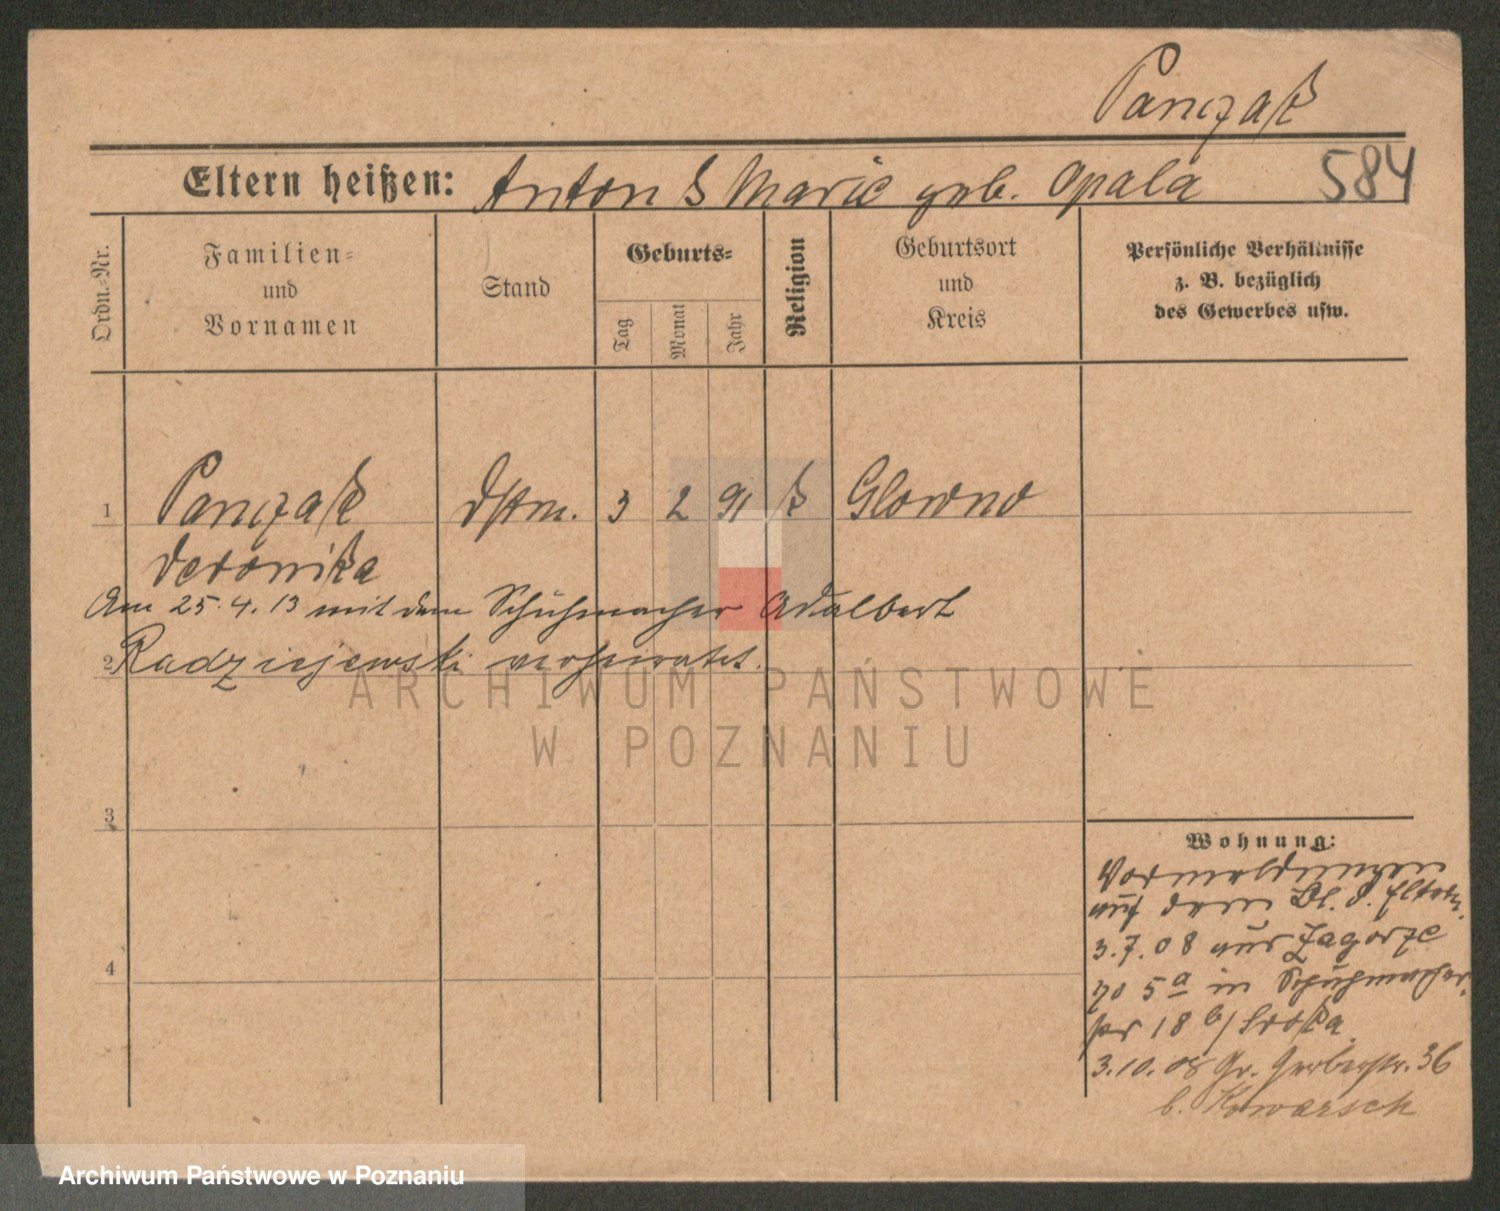 Panczak
Eltern heißen: Anton & Marie geb. Opala
584
Ordn.-Nr.
Familien=
und
Vornamen
Stand
Geburts=
Tag
Monat
Jahr
Religion
Geburtsort
und
Kreis
Persönliche Verhältnisse
z. B. bezüglich
des Gewerbes usw.
1 Panczak Dstm. 3 2 91 k Glowno
Veronika
Am 25.4.13 mit dem Schuhmacher Adalbert
2 Radziejewski verheiratet.
ARCHIWUM PAŃSTWOWE
W POZNANIU
3
Wohnung:
Vormeldungen
auf dem Bl. d. Eltern.
3.7.08 aus Zagorze
4
5a in Schuhmacher
str 18 b/ Sroka
3.10.08 Gr. Gerberstr. 36
b. Kowarsch
Archiwum Państwowe w Poznaniu